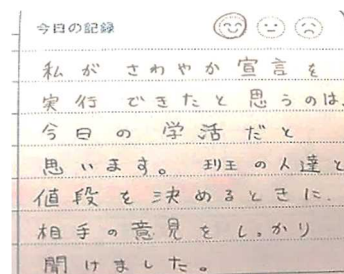 今日の記録
私がさわやか宣言を
実行できたと思うのは、
今日の学活だと
思います。班の人達と
値段を決めるときに、
相手の意見をしっかり
聞けました。